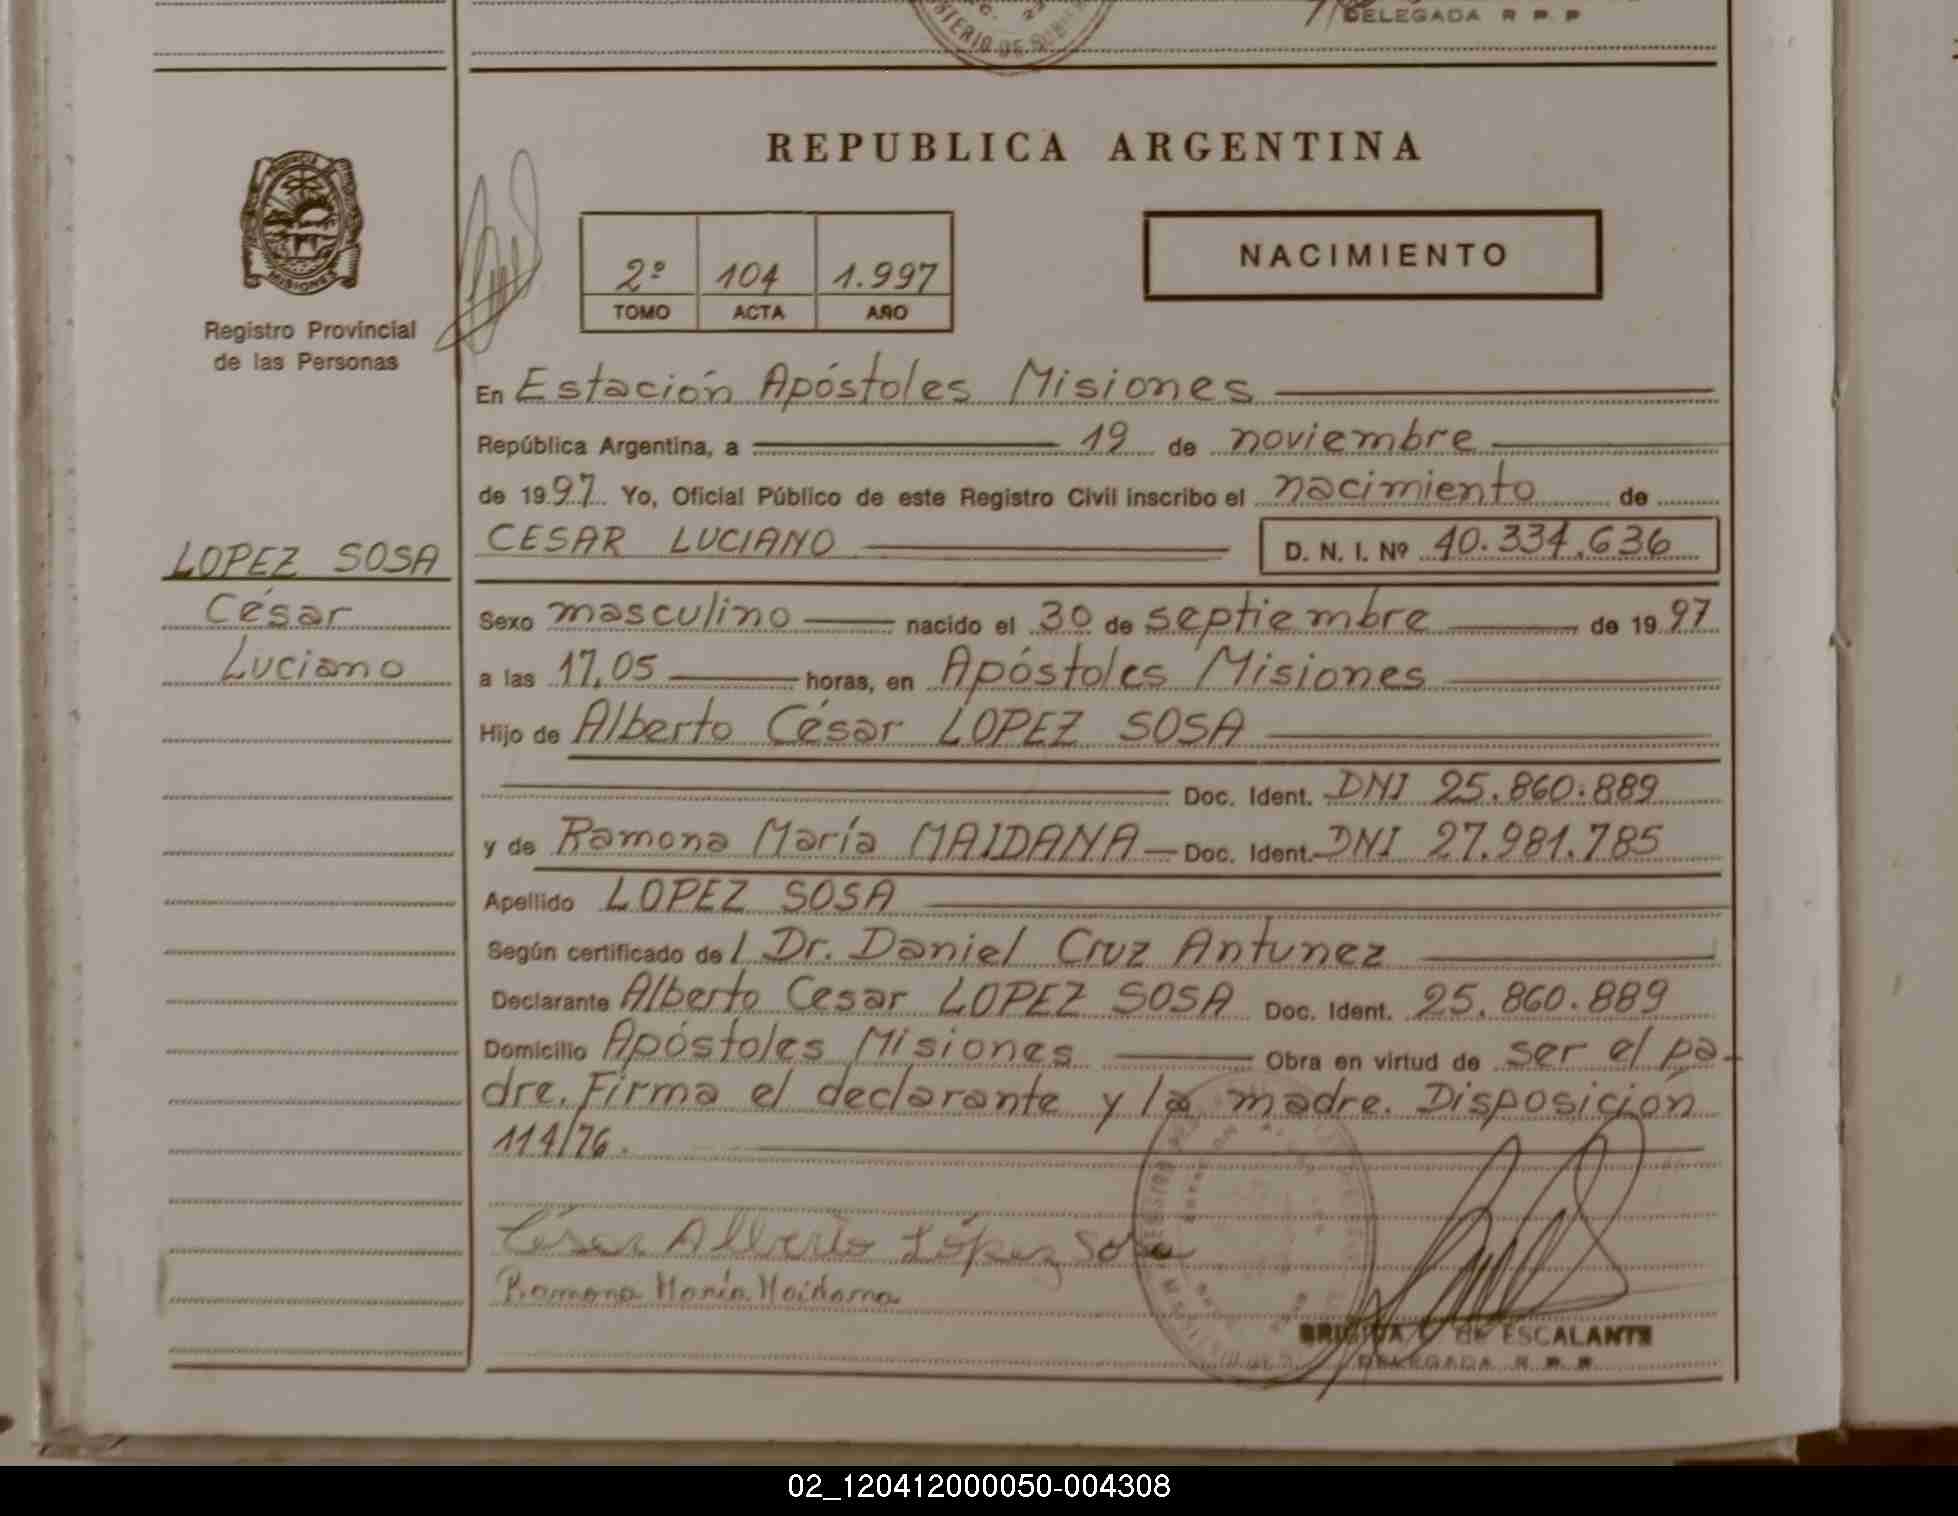 DELEGADA R P P
REPUBLICA ARGENTINA
2º 104 1.997
TOMO ACTA AÑO
NACIMIENTO
MISIONES
Registro Provincial
de las Personas
En Estación Apóstoles Misiones
República Argentina, a 19 de noviembre
de 1997. Yo, Oficial Público de este Registro Civil inscribo el nacimiento de
CESAR LUCIANO D. N. I. Nº 40.334.636
LOPEZ SOSA
César
Luciano
Sexo masculino nacido el 30 de septiembre de 1997
a las 17,05 horas, en Apóstoles Misiones
Hijo de Alberto César LOPEZ SOSA
Doc. Ident. DNI 25.860.889
y de Ramona María MAIDANA Doc. Ident. DNI 27.981.785
Apellido LOPEZ SOSA
Según certificado del Dr. Daniel Cruz Antunez
Declarante Alberto Cesar LOPEZ SOSA Doc. Ident. 25.860.889
Domicilio Apóstoles Misiones Obra en virtud de ser el pa-
dre. Firma el declarante y la madre. Disposición
114/76.
César Alberto López Sosa
Ramona María Maidana
DE ESCALANTE
DELEGADA R. P. P.
02_120412000050-004308